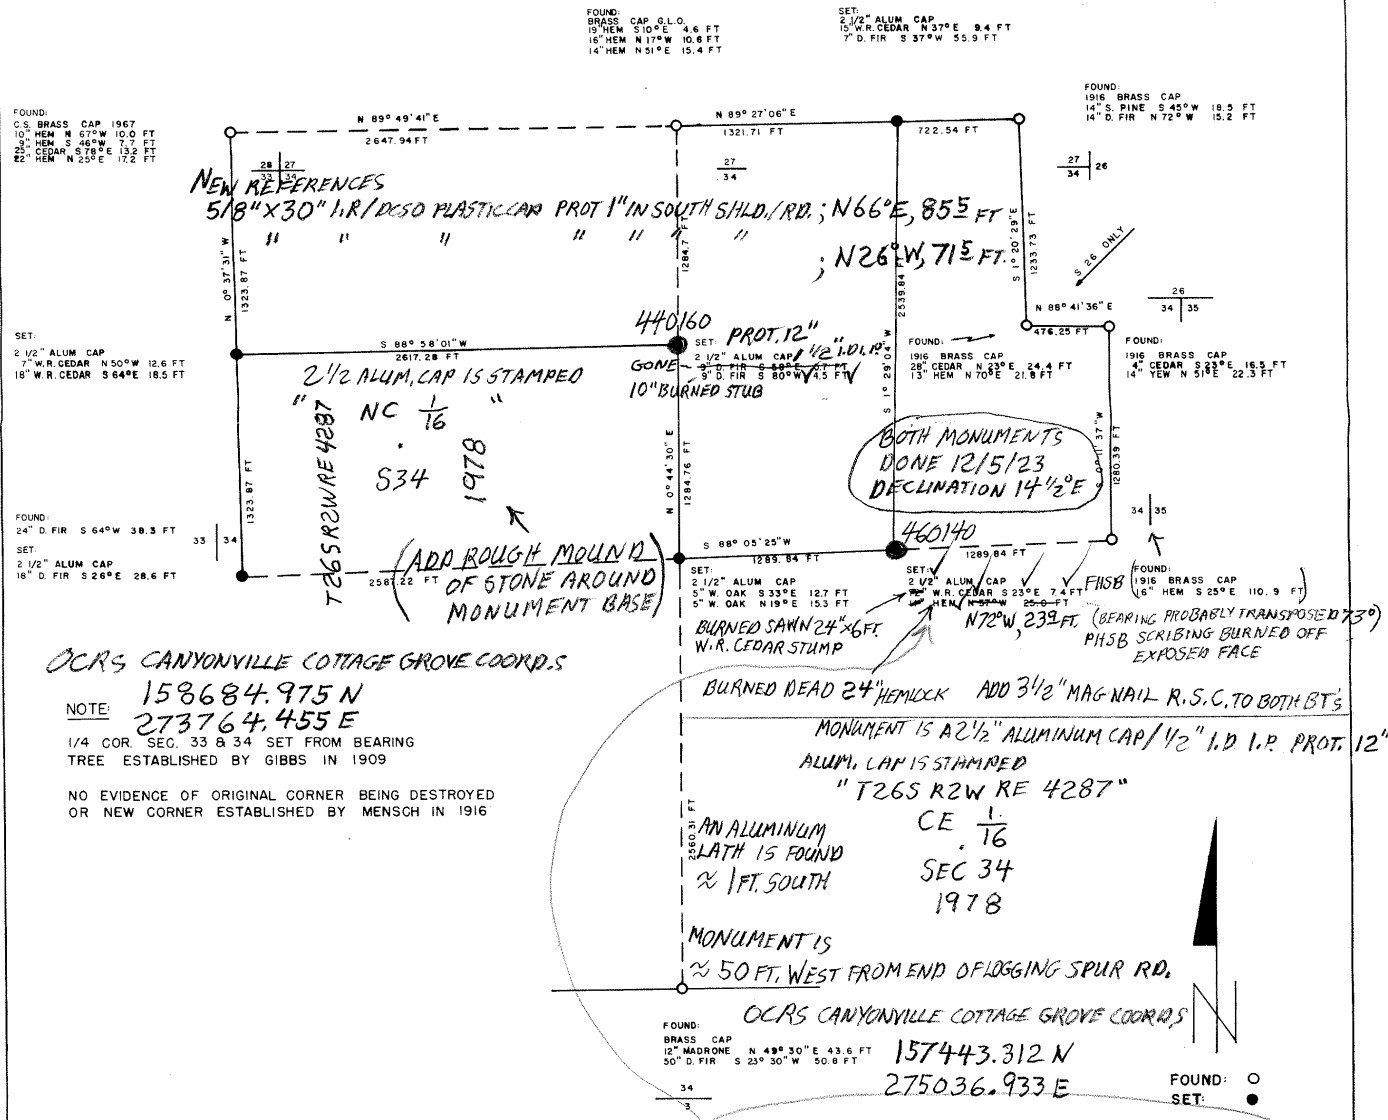 FOUND:
BRASS CAP G.L.O.
19" HEM S 10° E 4.6 FT
16" HEM N 17° W 10.6 FT
14" HEM N 51° E 15.4 FT
SET:
2 1/2" ALUM CAP
15" W.R. CEDAR N 37° E 9.4 FT
7" D. FIR S 37° W 55.9 FT
FOUND:
1916 BRASS CAP
14" S. PINE S 45° W 18.5 FT
14" D. FIR N 72° W 15.2 FT
FOUND:
C.S. BRASS CAP 1967
10" HEM N 67° W 10.0 FT
9" HEM S 46° W 7.7 FT
25" CEDAR S 78° E 13.2 FT
22" HEM N 25° E 17.2 FT
N 89° 49' 41" E
2647.94 FT
N 89° 27' 06" E
1321.71 FT
722.54 FT
28 27
33 34
27
34
27 26
34
NEW REFERENCES
5/8" X 30" I.R / DCSO PLASTIC CAP PROT 1" IN SOUTH SHLD./RD.; N66°E, 85⁵ FT
" " " " " "
; N26°W, 71⁵ FT.
N 0° 37' 31" W
1323.87 FT
1284.7 FT
2539.84 FT
S 1° 29' 04" W
S 1° 20' 29" E
1233.73 FT
S 26 ONLY
N 88° 41' 36" E
476.25 FT
26
34 35
SET:
2 1/2" ALUM CAP
7" W.R. CEDAR N 50° W 12.6 FT
18" W.R. CEDAR S 64° E 18.5 FT
S 88° 58' 01" W
2617.28 FT
440160
SET: PROT. 12"
2 1/2" ALUM CAP / 1/2" I.D. I.P.
GONE
9" D. FIR S 80° W 4.5 FT
10" BURNED STUB
FOUND:
1916 BRASS CAP
28" CEDAR N 23° E 24.4 FT
13" HEM N 70° E 21.8 FT
FOUND:
1916 BRASS CAP
4" CEDAR S 23° E 16.5 FT
14" YEW N 51° E 22.3 FT
2 1/2 ALUM, CAP IS STAMPED
" NC 1/16 "
S34
T26S R2W RE 4287
1978
1323.87 FT
N 0° 44' 30" E
1284.76 FT
BOTH MONUMENTS
DONE 12/5/23
DECLINATION 14 1/2° E
S 0° 11' 37" W
1280.39 FT
FOUND:
24" D. FIR S 64° W 38.3 FT
SET:
2 1/2" ALUM CAP
18" D. FIR S 26° E 28.6 FT
33 34
2587.22 FT
(ADD ROUGH MOUND
OF STONE AROUND
MONUMENT BASE)
S 88° 05' 25" W
1289.84 FT
460140
1289.84 FT
34 35
SET:
2 1/2" ALUM CAP
5" W. OAK S 33° E 12.7 FT
5" W. OAK N 19° E 15.3 FT
SET:
2 1/2" ALUM CAP
W.R. CEDAR S 23° E 7.4 FT
HEM N 57° W 25.0 FT
FHSB
FOUND:
1916 BRASS CAP
16" HEM S 25° E 110.9 FT
BURNED SAWN 24" X 6 FT.
W.R. CEDAR STUMP
N72°W, 23⁹ FT. (BEARING PROBABLY TRANSPOSED 73°)
PHSB SCRIBING BURNED OFF
EXPOSED FACE
OCRS CANYONVILLE COTTAGE GROVE COORD.S
158684.975 N
273764.455 E
BURNED DEAD 24" HEMLOCK ADD 3 1/2" MAG NAIL R.S.C. TO BOTH BT's
NOTE:
1/4 COR. SEC. 33 & 34 SET FROM BEARING
TREE ESTABLISHED BY GIBBS IN 1909
NO EVIDENCE OF ORIGINAL CORNER BEING DESTROYED
OR NEW CORNER ESTABLISHED BY MENSCH IN 1916
MONUMENT IS A 2 1/2" ALUMINUM CAP / 1/2" I.D. I.P. PROT. 12"
ALUM. CAP IS STAMPED
"T26S R2W RE 4287"
CE 1/16
SEC 34
1978
2560.31 FT
AN ALUMINUM
LATH IS FOUND
≈ 1 FT. SOUTH
MONUMENT IS
≈ 50 FT. WEST FROM END OF LOGGING SPUR RD.
OCRS CANYONVILLE COTTAGE GROVE COORD,S
157443.312 N
275036.933 E
FOUND:
BRASS CAP
12" MADRONE N 49° 30" E 43.6 FT
50" D. FIR S 23° 30" W 50.8 FT
34
3
N
FOUND:
SET: